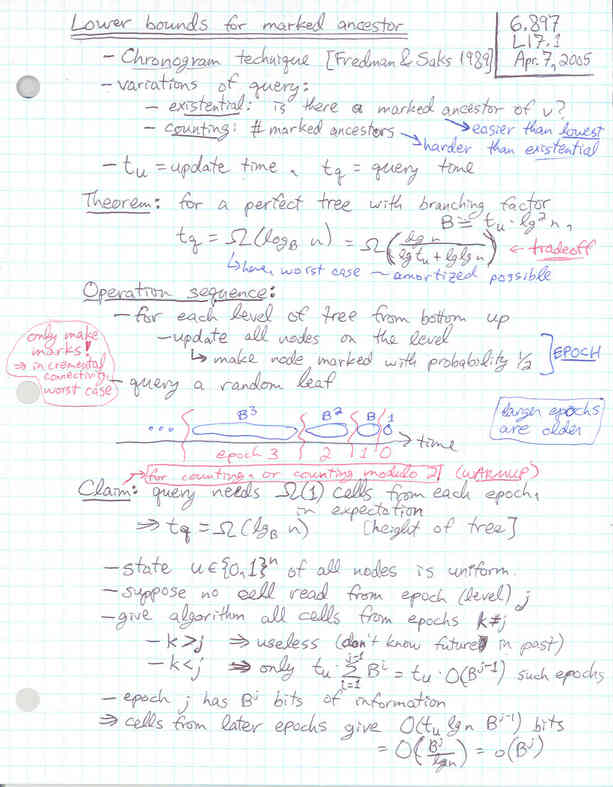 Lower bounds for marked ancestor
6.897
L17.1
Apr. 7, 2005
- Chronogram technique [Fredman & Saks 1989]
- variations of query:
- existential: is there a marked ancestor of v?
- counting: # marked ancestors → easier than lowest
→ harder than existential
- tu = update time, tq = query time
Theorem: for a perfect tree with branching factor
B ≅ tu · lg² n,
tq = Ω(log_B n) = Ω(lg n / (lg tu + lg lg n)) ← tradeoff
↳ here, worst case - amortized possible
Operation sequence:
- for each level of tree from bottom up
- update all nodes on the level
↳ make node marked with probability 1/2
] EPOCH
only make
marks!
⇒ incremental
connectivity
worst case
- query a random leaf
B³ B² B 1
... → time
epoch 3 2 1 0
larger epochs
are older
→ for counting, or counting modulo 2! (WARMUP)
Claim: query needs Ω(1) cells from each epoch,
in expectation
⇒ tq = Ω(lg_B n) [height of tree]
- state u ∈ {0,1}ⁿ of all nodes is uniform.
- suppose no cell read from epoch (level) j
- give algorithm all cells from epochs k≠j
- k>j ⇒ useless (don't know future in past)
- k<j ⇒ only tu · Σ_{i=1}^{j-1} Bⁱ = tu · O(B^{j-1}) such epochs
- epoch j has B^j bits of information
⇒ cells from later epochs give O(tu lg n B^{j-1}) bits
= O(B^j / lg n) = o(B^j)